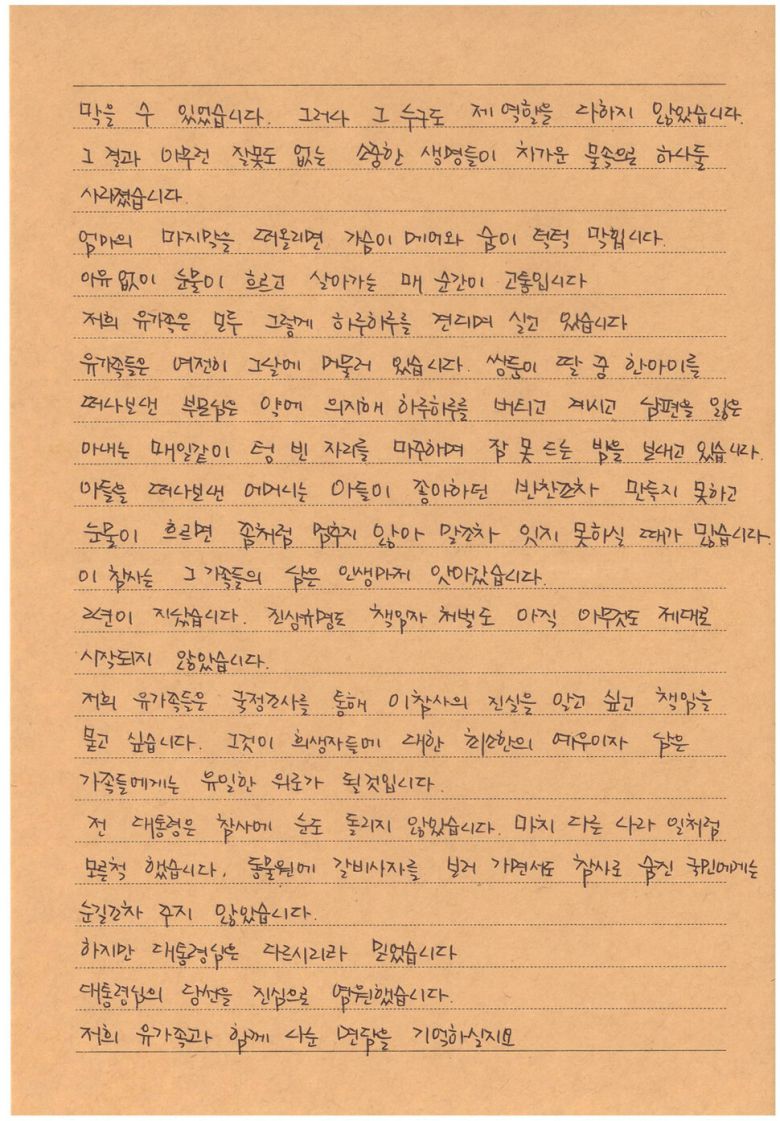 막을 수 있었습니다. 그러나 그 누구도 제 역할을 다하지 않았습니다.
그 결과 아무런 잘못도 없는 소중한 생명들이 차가운 물속으로 하나둘
사라졌습니다.
엄마의 마지막을 떠올리면 가슴이 메어와 숨이 턱턱 막힙니다.
이유없이 눈물이 흐르고 살아가는 매 순간이 고통입니다
저희 유가족은 모두 그렇게 하루하루를 견디며 살고 있습니다
유가족들은 여전히 그날에 머물러 있습니다. 쌍둥이 딸 중 한아이를
떠나보낸 부모님은 약에 의지해 하루하루를 버티고 계시고 남편을 잃은
아내는 매일같이 텅 빈 자리를 마주하며 잘 못 드는 밤을 보내고 있습니다.
아들을 떠나보낸 어머니는 아들이 좋아하던 반찬조차 만들지 못하고
눈물이 흐르면 좀처럼 멈추지 않아 말조차 잇지 못하실 때가 많습니다.
이 참사는 그 가족들의 남은 인생마저 앗아갔습니다.
2년이 지났습니다. 진상규명도 책임자 처벌도 아직 아무것도 제대로
시작되지 않았습니다.
저희 유가족들은 국정조사를 통해 이참사의 진실을 알고 싶고 책임을
묻고 싶습니다. 그것이 희생자들에 대한 최소한의 예우이자 남은
가족들에게는 유일한 위로가 될것입니다.
전 대통령은 참사에 눈도 돌리지 않았습니다. 마치 다른 나라 일처럼
모른척 했습니다. 동물원에 갈비사자를 보러 가면서도 참사로 숨진 국민에게는
눈길조차 주지 않았습니다.
하지만 대통령님은 다르시리라 믿었습니다
대통령님의 당선을 진심으로 염원했습니다.
저희 유가족과 함께 나눈 면담을 기억하실지요